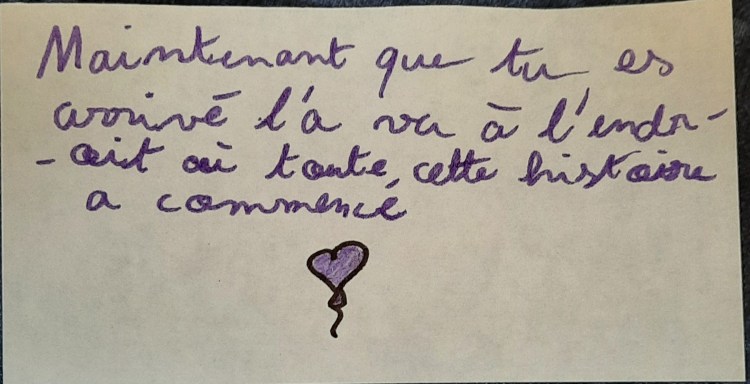 Maintenant que tu es
arrivé l'a va à l'endr-
-oit où toute, cette histoire
a commencé